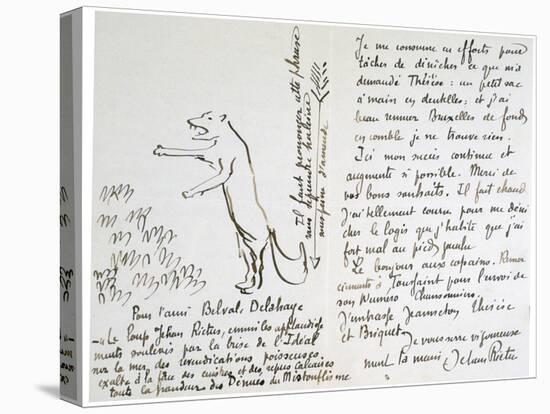 Pour l'ami Belval-Delahaye
Le Loup Jehan Rictus, emmi les applaudisse
ments soulevés par la brise de l'Idéal
sur la mer des revendications poisseuses,
exalte à la face des cuistres et des repus
toute la grandeur des Dénués du Mistouflisme
Il faut prononcer cette phrase
sans reprendre haleine
Je me consume en efforts pour
tâcher de dénicher ce que m'a
demandé Thérèse : un petit sac
à main en dentelles ; et j'ai
beau remuer Bruxelles de fond
en comble je ne trouve rien.
Ici mon succès continue et
augmente si possible. Merci de
vos bons souhaits. Il fait chaud
J'ai tellement couru pour me déni
cher le logis que j'habite que j'ai
fort mal au pied gauche
Le bonjour aux copains. Remer
ciements à Toussaint pour l'envoi de
son Numéro Chansonnier.
J'embrasse Jeanneton Thérèse
et Briquet
Je vous serre vigoureuse
ment la main Jehan Rictus